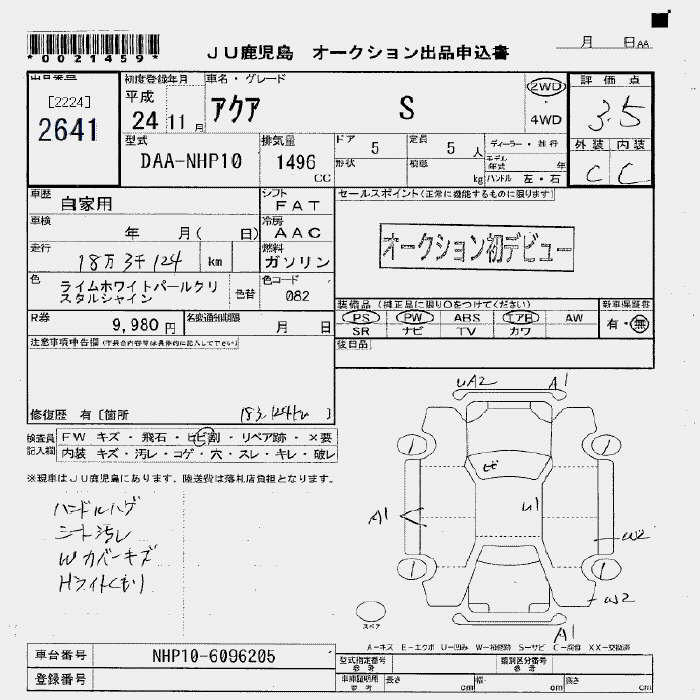 *0021459*
JU鹿児島 オークション出品申込書
月 日 AA
[2224]
2641
初度登録年月
平成
24 11 月
車名・グレード
アクア S
2WD
4WD
評価点
3.5
外装 内装
C C
型式
DAA-NHP10
排気量
1496
CC
ドア 5
形状
定員 5 人
積載 kg
ディーラー・並行
モデル年式 年
ハンドル 左・右
車歴
自家用
シフト
FAT
車検
年 月( 日)
冷房
AAC
走行
18万3千124 km
燃料
ガソリン
色
ライムホワイトパールクリスタルシャイン
色替
色コード
082
R券
9,980 円
名変通知期限
月 日
セールスポイント(正常に機能するものに限ります)
オークション初デビュー
装備品(純正品に限り○をつけてください)
PS PW ABS エアB AW
SR ナビ TV カワ
新車保証書
有・無
後日品
注意事項申告欄
修復歴 有〔箇所 183,124km 〕
検査員記入欄
FW キズ・飛石・ヒビ割・リペア跡・×要
内装 キズ・汚レ・コゲ・穴・スレ・キレ・破レ
※現車はJU鹿児島にあります、陸送費は落札店負担となります。
ハンドルハゲ
シート汚レ
Wカバーキズ
Hライトくもり
UA2
A1
ヒ
U1
A1
W2
W2
A1
スペア
A-キズ E-エクボ U-凹み W-補修跡 S-サビ C-腐食 XX-交換済
車台番号
NHP10-6096205
登録番号
型式指定番号
参考
類別区分番号
車庫証明用
参考
長さ cm
幅 cm
高さ cm